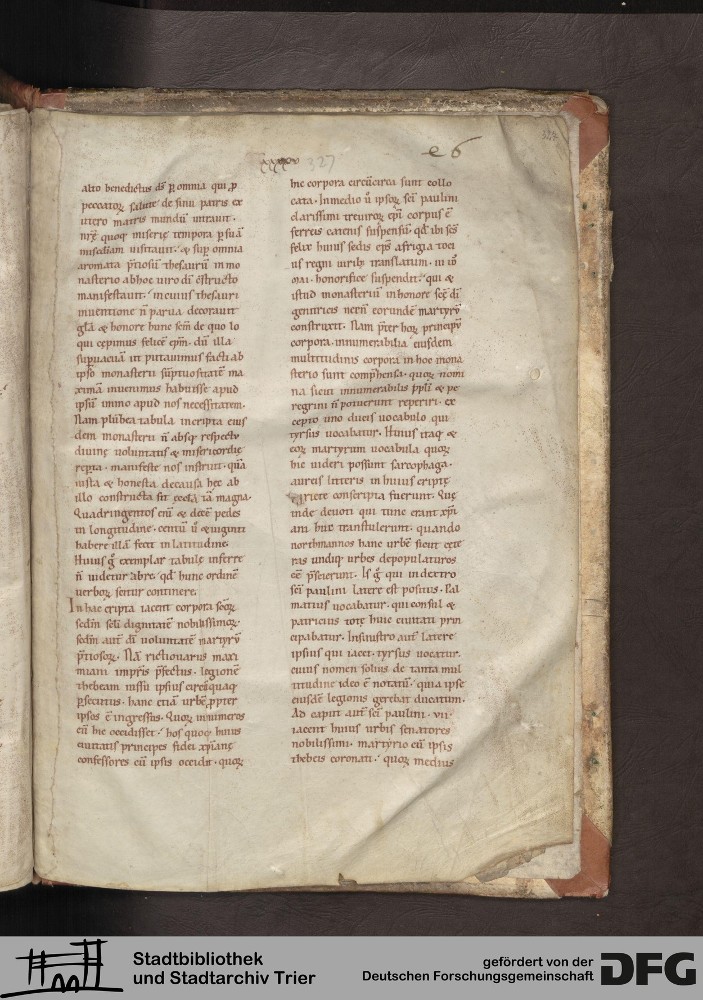 327
e 6
327
alto benedictus ds̄ p̱ omnia qui p̱
peccatoꝝ salute de sinu patris ex
utero matris mundū intrauit.
nr̄ę quoq; miserię tempora p̱ suā
misc̄diam uisitauit. & sup̱ omnia
aromata p̄tiosū thesaurū in mo
nasterio ab hoc uiro dī c̄structo
manifestauit. in cuius thesauri
inuentione n̄ parua decorauit
gl̄a & honore hunc sc̄m de quo lo
qui cepimus felicē epm̄. dū illa
sup̱uacua ut putauimus facti ab
ip̄so monasterii sūptuositatē ma
ximā inuenimus habuisse apud
ipsū immo apud nos necessitatem.
Nam plūbea tabula inscripta eius
dem monasterii n̄ absq; respectu
diuinę uoluntatis & misericordię
rep̱ta. manifeste nos instruit. quā
iusta & honesta de causa hęc ab
illo constructa sit ęccl̄a tā magna.
Quadringentos eni & decē pedes
in longitudine. centū ū & uiginti
habere illā fecit in latitudine.
Huius g̊ exemplar tabulę inserere
n̄ uidetur ab re. qd̄ hunc ordinē
uerboꝝ fertur continere.
In hac cripta iacent corpora sc̄oꝝ
sedm̄ scl̄i dignitatē nobilissimoꝝ.
sedm̄ aut̄ dī uoluntatē martyrū
p̄tiosoꝝ. Nā rictiouarus maxi
miani imp̱ris p̄fectus. legionē
thebeam iussu ipsius circūquaq;
p̱secutus. hanc etiā urbē p̱pter
ipsos ē ingressus. Quoꝝ innumeros
cū hic occidisset. hos quoq; huius
ciuitatis principes fidei xp̄ianę
confessores cū ipsis occidit. quoꝝ
hic corpora circūcirca sunt collo
cata. In medio ū ipsoꝝ sc̄i paulini
clarissimi treuiroꝝ ep̄i corpus ē
ferreis catenis suspensū qd̄ ibi sc̄s
felix huius sedis ep̄s a frigia toci
us regni uirib; translatum. iii id̄
mai. honorifice suspendit. qui &
istud monasteriū in honore sc̄ę dī
genitricis necn̄ eorundē martyrū
construxit. Nam p̄ter hoꝝ principū
corpora. innumerabilia eiusdem
multitudinis corpora in hoc mona
sterio sunt comp̱hensa. quoꝝ nomi
na sicut innumerabilis pp̄li & pe
regrini n̄ potuerunt reperiri. ex
cepto uno ducis uocabulo qui
tyrsus uocabatur. Huius itaq; &
eoꝝ martyrum uocabula quoꝝ
hic uideri possunt sarcophaga.
aureis litteris in huius criptę
pariete conscripta fuerunt. Quę
inde deuoti qui tunc erant xp̄i
ani huc transtulerunt. quando
northmannos hanc urbē sicut cęte
ras undiq; urbes depopulaturos
eē p̄scierunt. Is g̊ qui in dextro
sc̄i paulini latere est positus. Pal
matius uocabatur. qui consul &
patricius totę huic ciuitati prin
cipabatur. In sinistro aut̄ latere
ipsius qui iacet. tyrsus uocatur.
cuius nomen solius de tanta mul
titudine ideo ē notatū. quia ipse
eiusdē legionis gerebat ducatum.
Ad caput aut̄ sc̄i paulini. vii.
iacent huius urbis senatores
nobilissimi. martyrio cū ipsis
thebeis coronati. quoꝝ medius
Stadtbibliothek
und Stadtarchiv Trier
gefördert von der
Deutschen Forschungsgemeinschaft
DFG